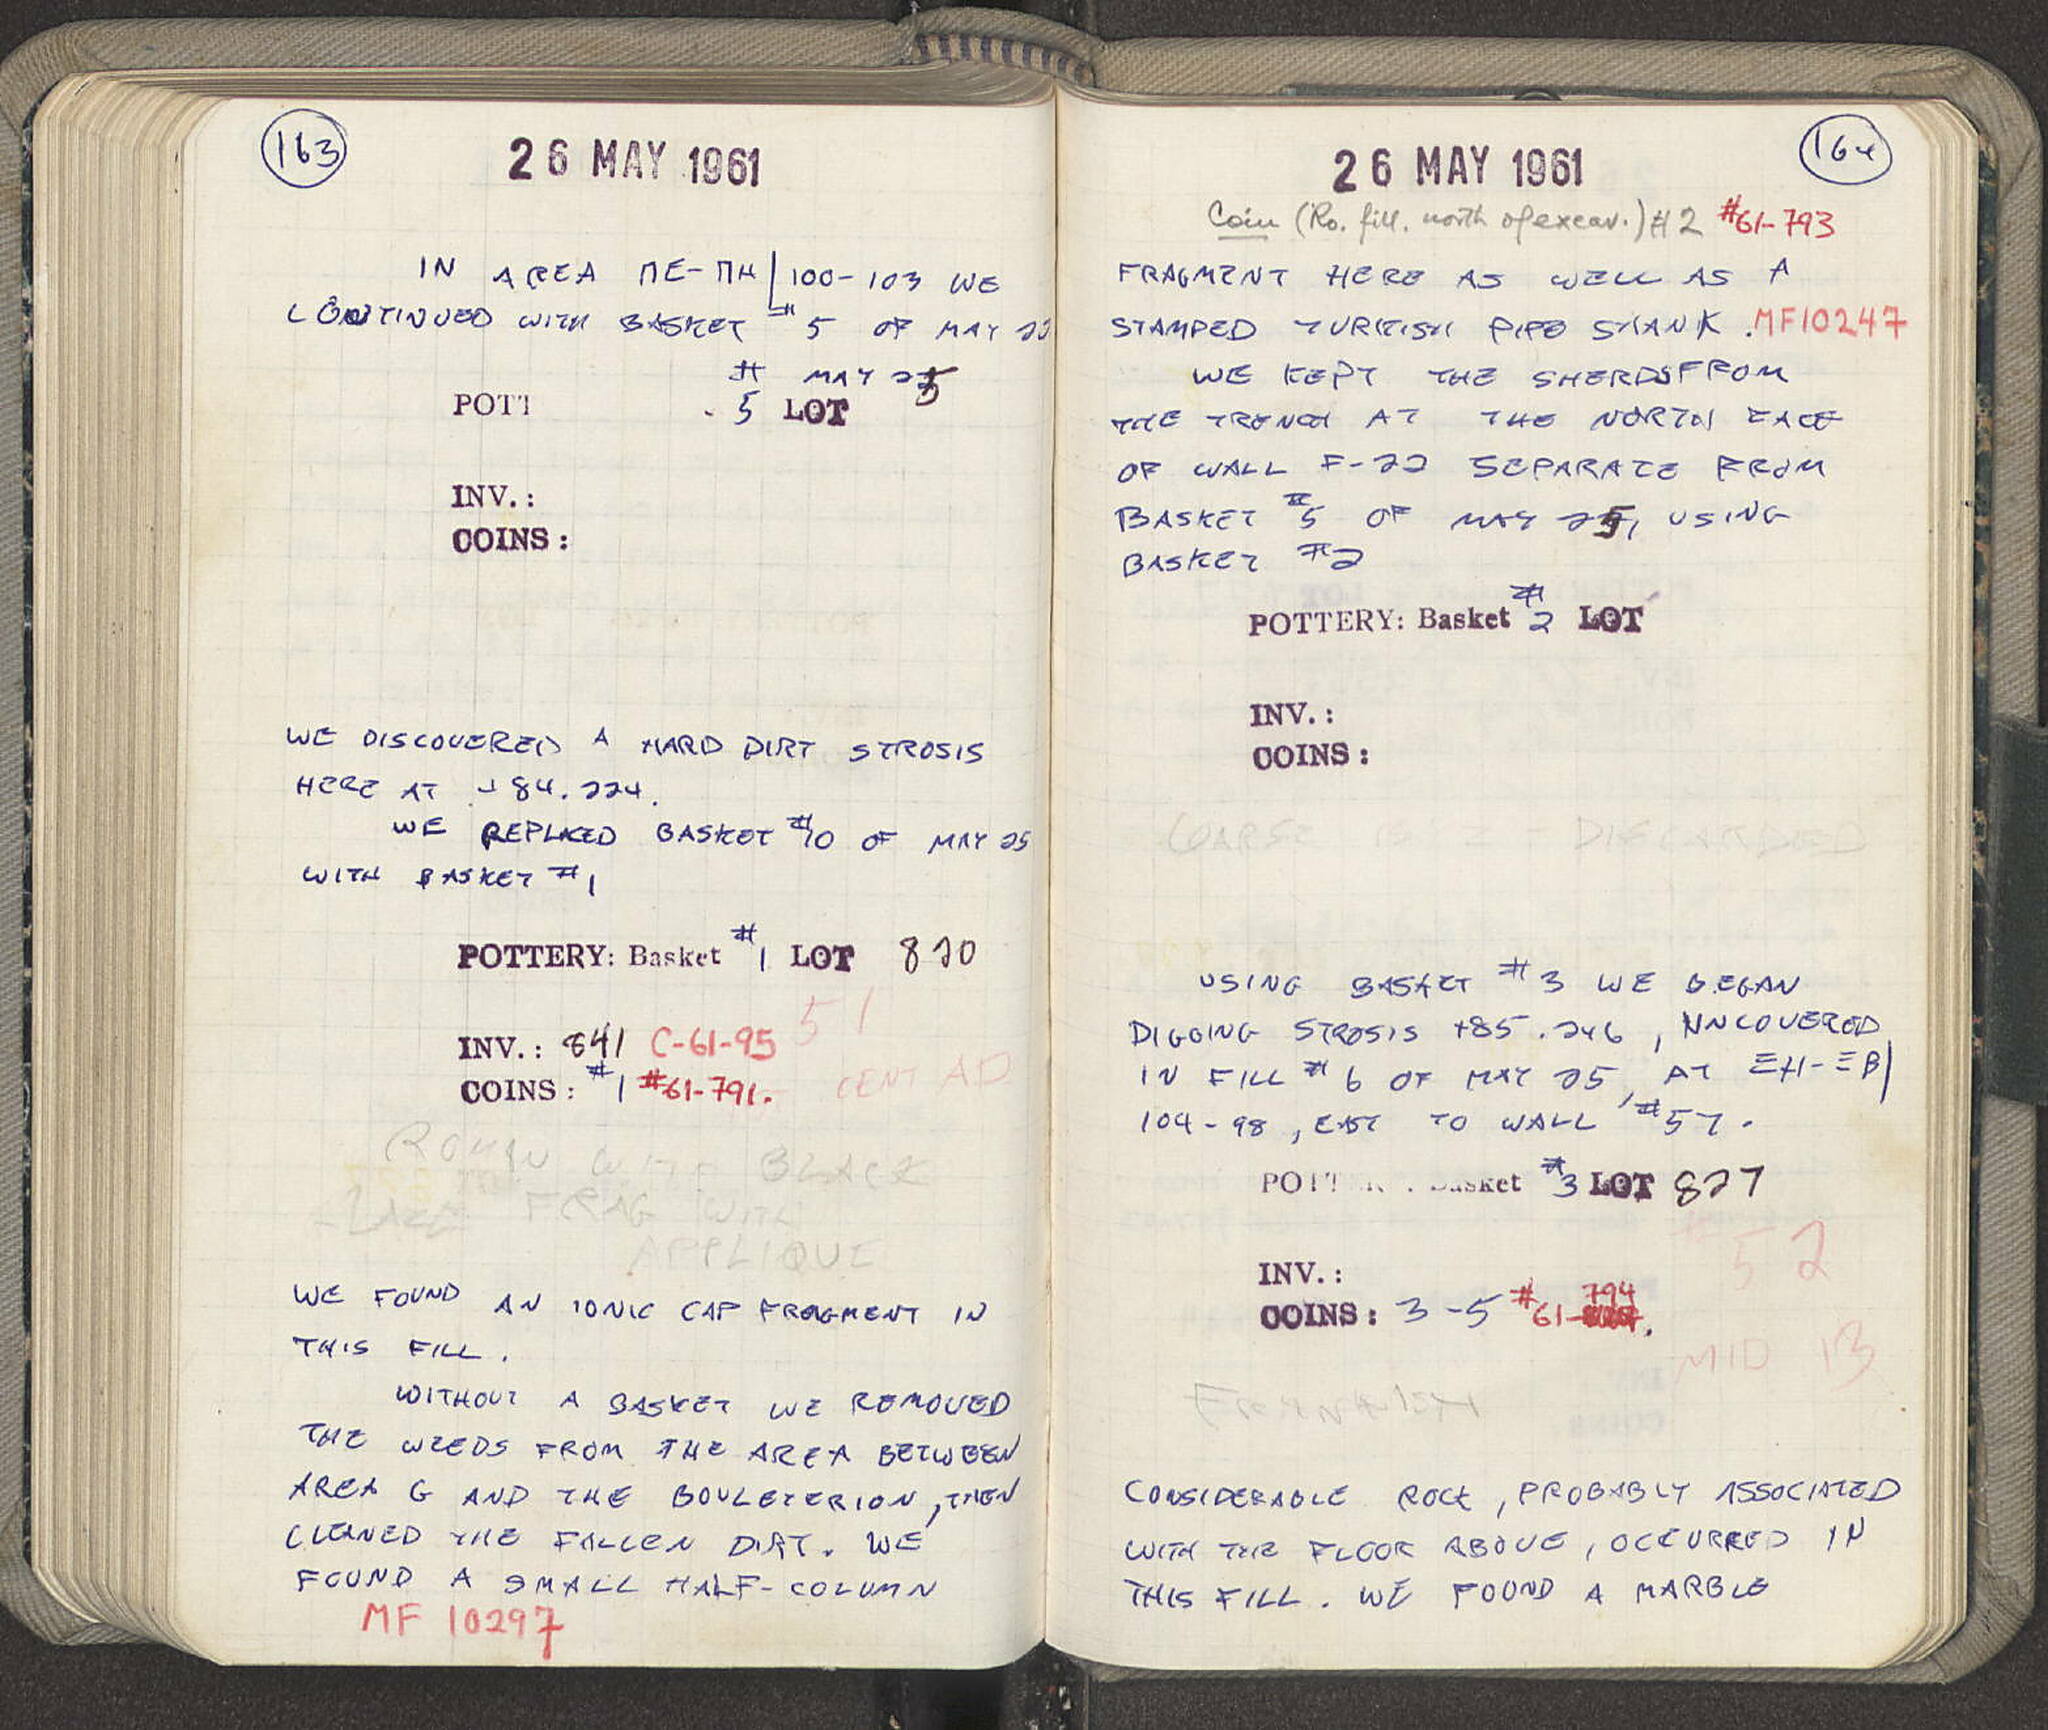 163
26 MAY 1961
IN AREA ΠE-ΠH|100-103 WE
CONTINUED WITH BASKET #5 OF MAY 22
# MAY 25
POTT 5 LOT
INV.:
COINS:
WE DISCOVERED A HARD DIRT STROSIS
HERE AT +84.224.
WE REPLACED BASKET #10 OF MAY 25
WITH BASKET #1
POTTERY: Basket #1 LOT 820
51
INV.: 841 C-61-95
COINS: #1 #61-791. CENT AD
ROMAN WITH BLACK
GLAZE FRAG WITH
APPLIQUE
WE FOUND AN IONIC CAP FRAGMENT IN
THIS FILL.
WITHOUT A BASKET WE REMOVED
THE WEEDS FROM THE AREA BETWEEN
AREA G AND THE BOULETERION, THEN
CLEANED THE FALLEN DIRT. WE
FOUND A SMALL HALF-COLUMN
MF 10297
164
26 MAY 1961
Coin (Ro. fill. north of excav.) #2 #61-793
FRAGMENT HERE AS WELL AS A
STAMPED TURKISH PIPE SHANK. MF10247
WE KEPT THE SHERDS FROM
THE TRENCH AT THE NORTH FACE
OF WALL F-22 SEPARATE FROM
BASKET #5 OF MAY 25, USING
BASKET #2
POTTERY: Basket #2 LOT
INV.:
COINS:
COARSE DISCARDED
USING BASKET #3 WE BEGAN
DIGGING STROSIS +85.246, UNCOVERED
IN FILL #6 OF MAY 25, AT ΞH-ΞB|
104-98, EAST TO WALL #57.
POTT Basket #3 LOT 827
52
INV.:
COINS: 3-5 #61-794.
MID 13
CONSIDERABLE ROCK, PROBABLY ASSOCIATED
WITH THE FLOOR ABOVE, OCCURRED IN
THIS FILL. WE FOUND A MARBLE